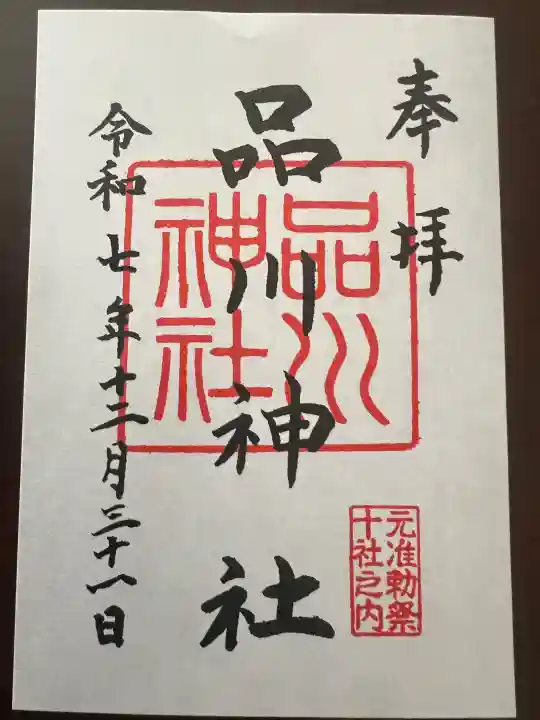 奉拝
品川神社
令和七年十二月二十八日
品川
神社
元准勅祭
十社之内